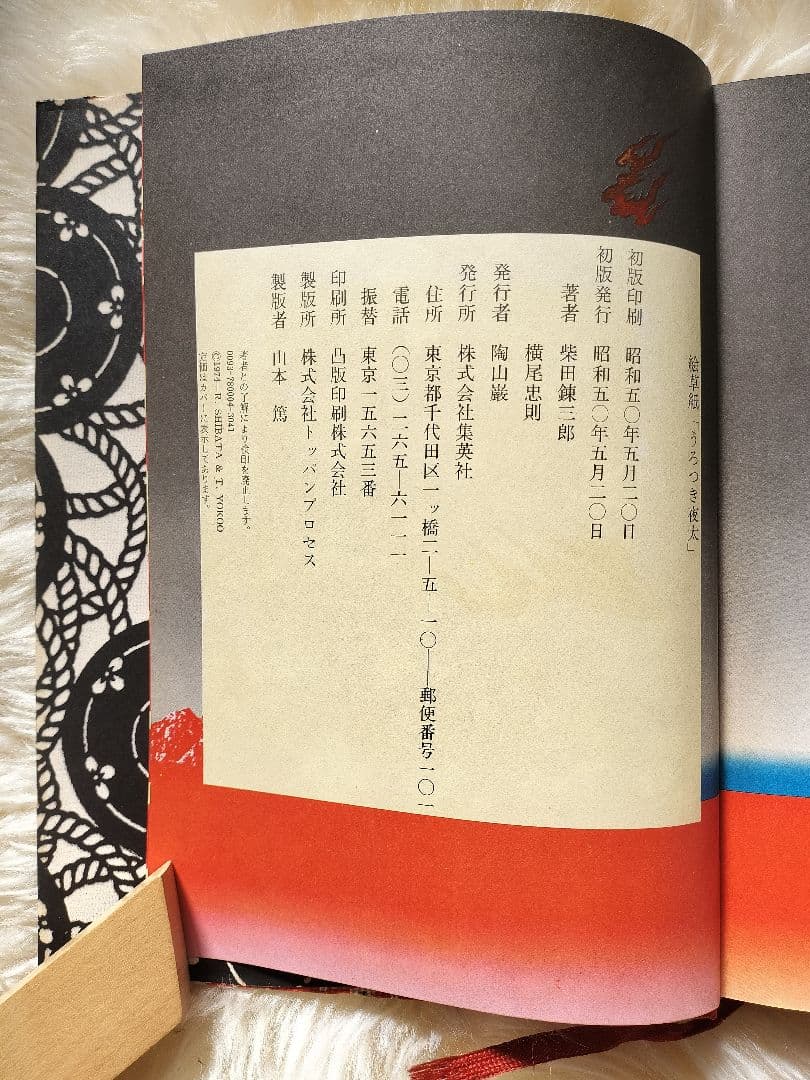 絵草紙「うろつき夜太」
初版印刷 昭和五〇年五月二〇日
初版発行 昭和五〇年五月二〇日
著者 柴田錬三郎
横尾忠則
発行者 陶山巌
発行所 株式会社集英社
住所 東京都千代田区一ッ橋二—五—一〇——郵便番号一〇一
電話 (〇三)二六五—六一一一
振替 東京一五六五三番
印刷所 凸版印刷株式会社
製版所 株式会社トッパンプロセス
製版者 山本 篤
著者との了解により検印を廃止します。
0093-780004-3041
©1974—R. SHIBATA & T. YOKOO
定価はカバーに表示してあります。